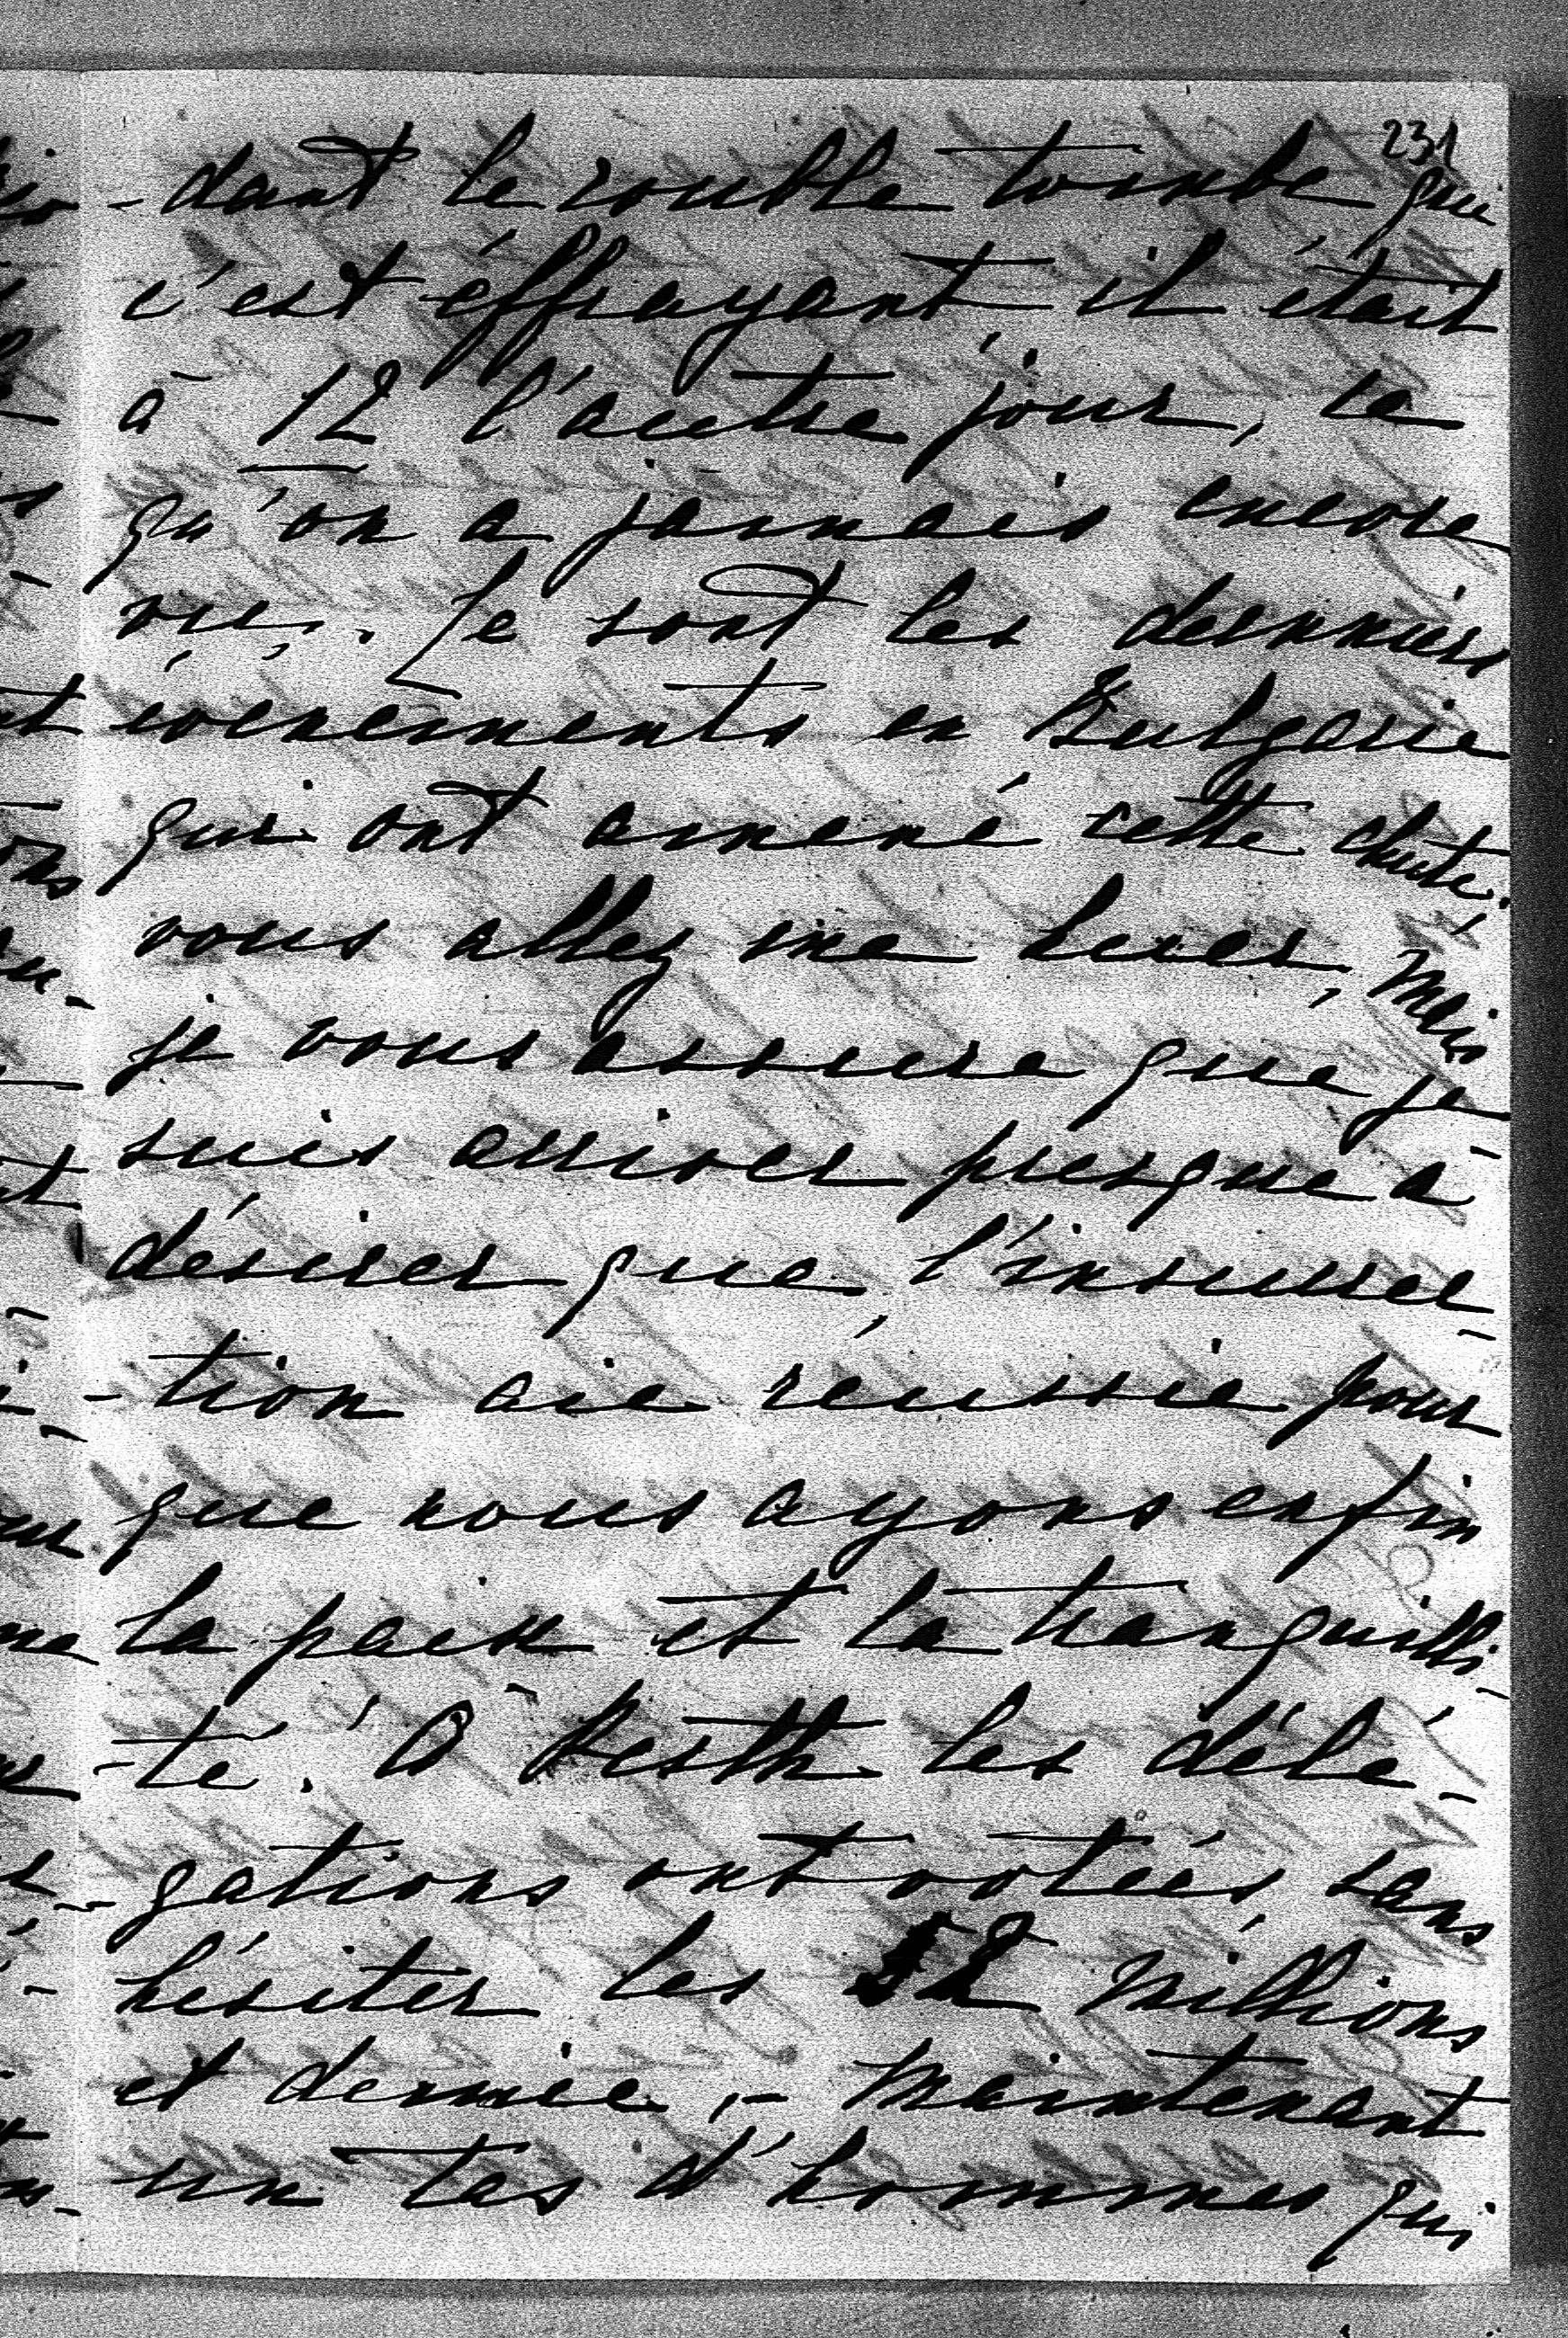 231
-dant le rouble tombe que
c'est éffrayant il était
à 12 l'autre jour, ce
qu'on a jamais encore
vu. Ce sont les derniers
évènements en Bulgarie
qui ont amené cette chute.
vous allez me huer, mais
je vous assure que je
suis arriver presque à
désirer que l'insurrec
-tion aie réussie pour
que nous ayons enfin
la paix et la tranquilli-
-té. À Pesth les délé-
-gations ont votées sans
hésiter les 52 millions
et demie,- Maintenant
un tas d'hommes qui